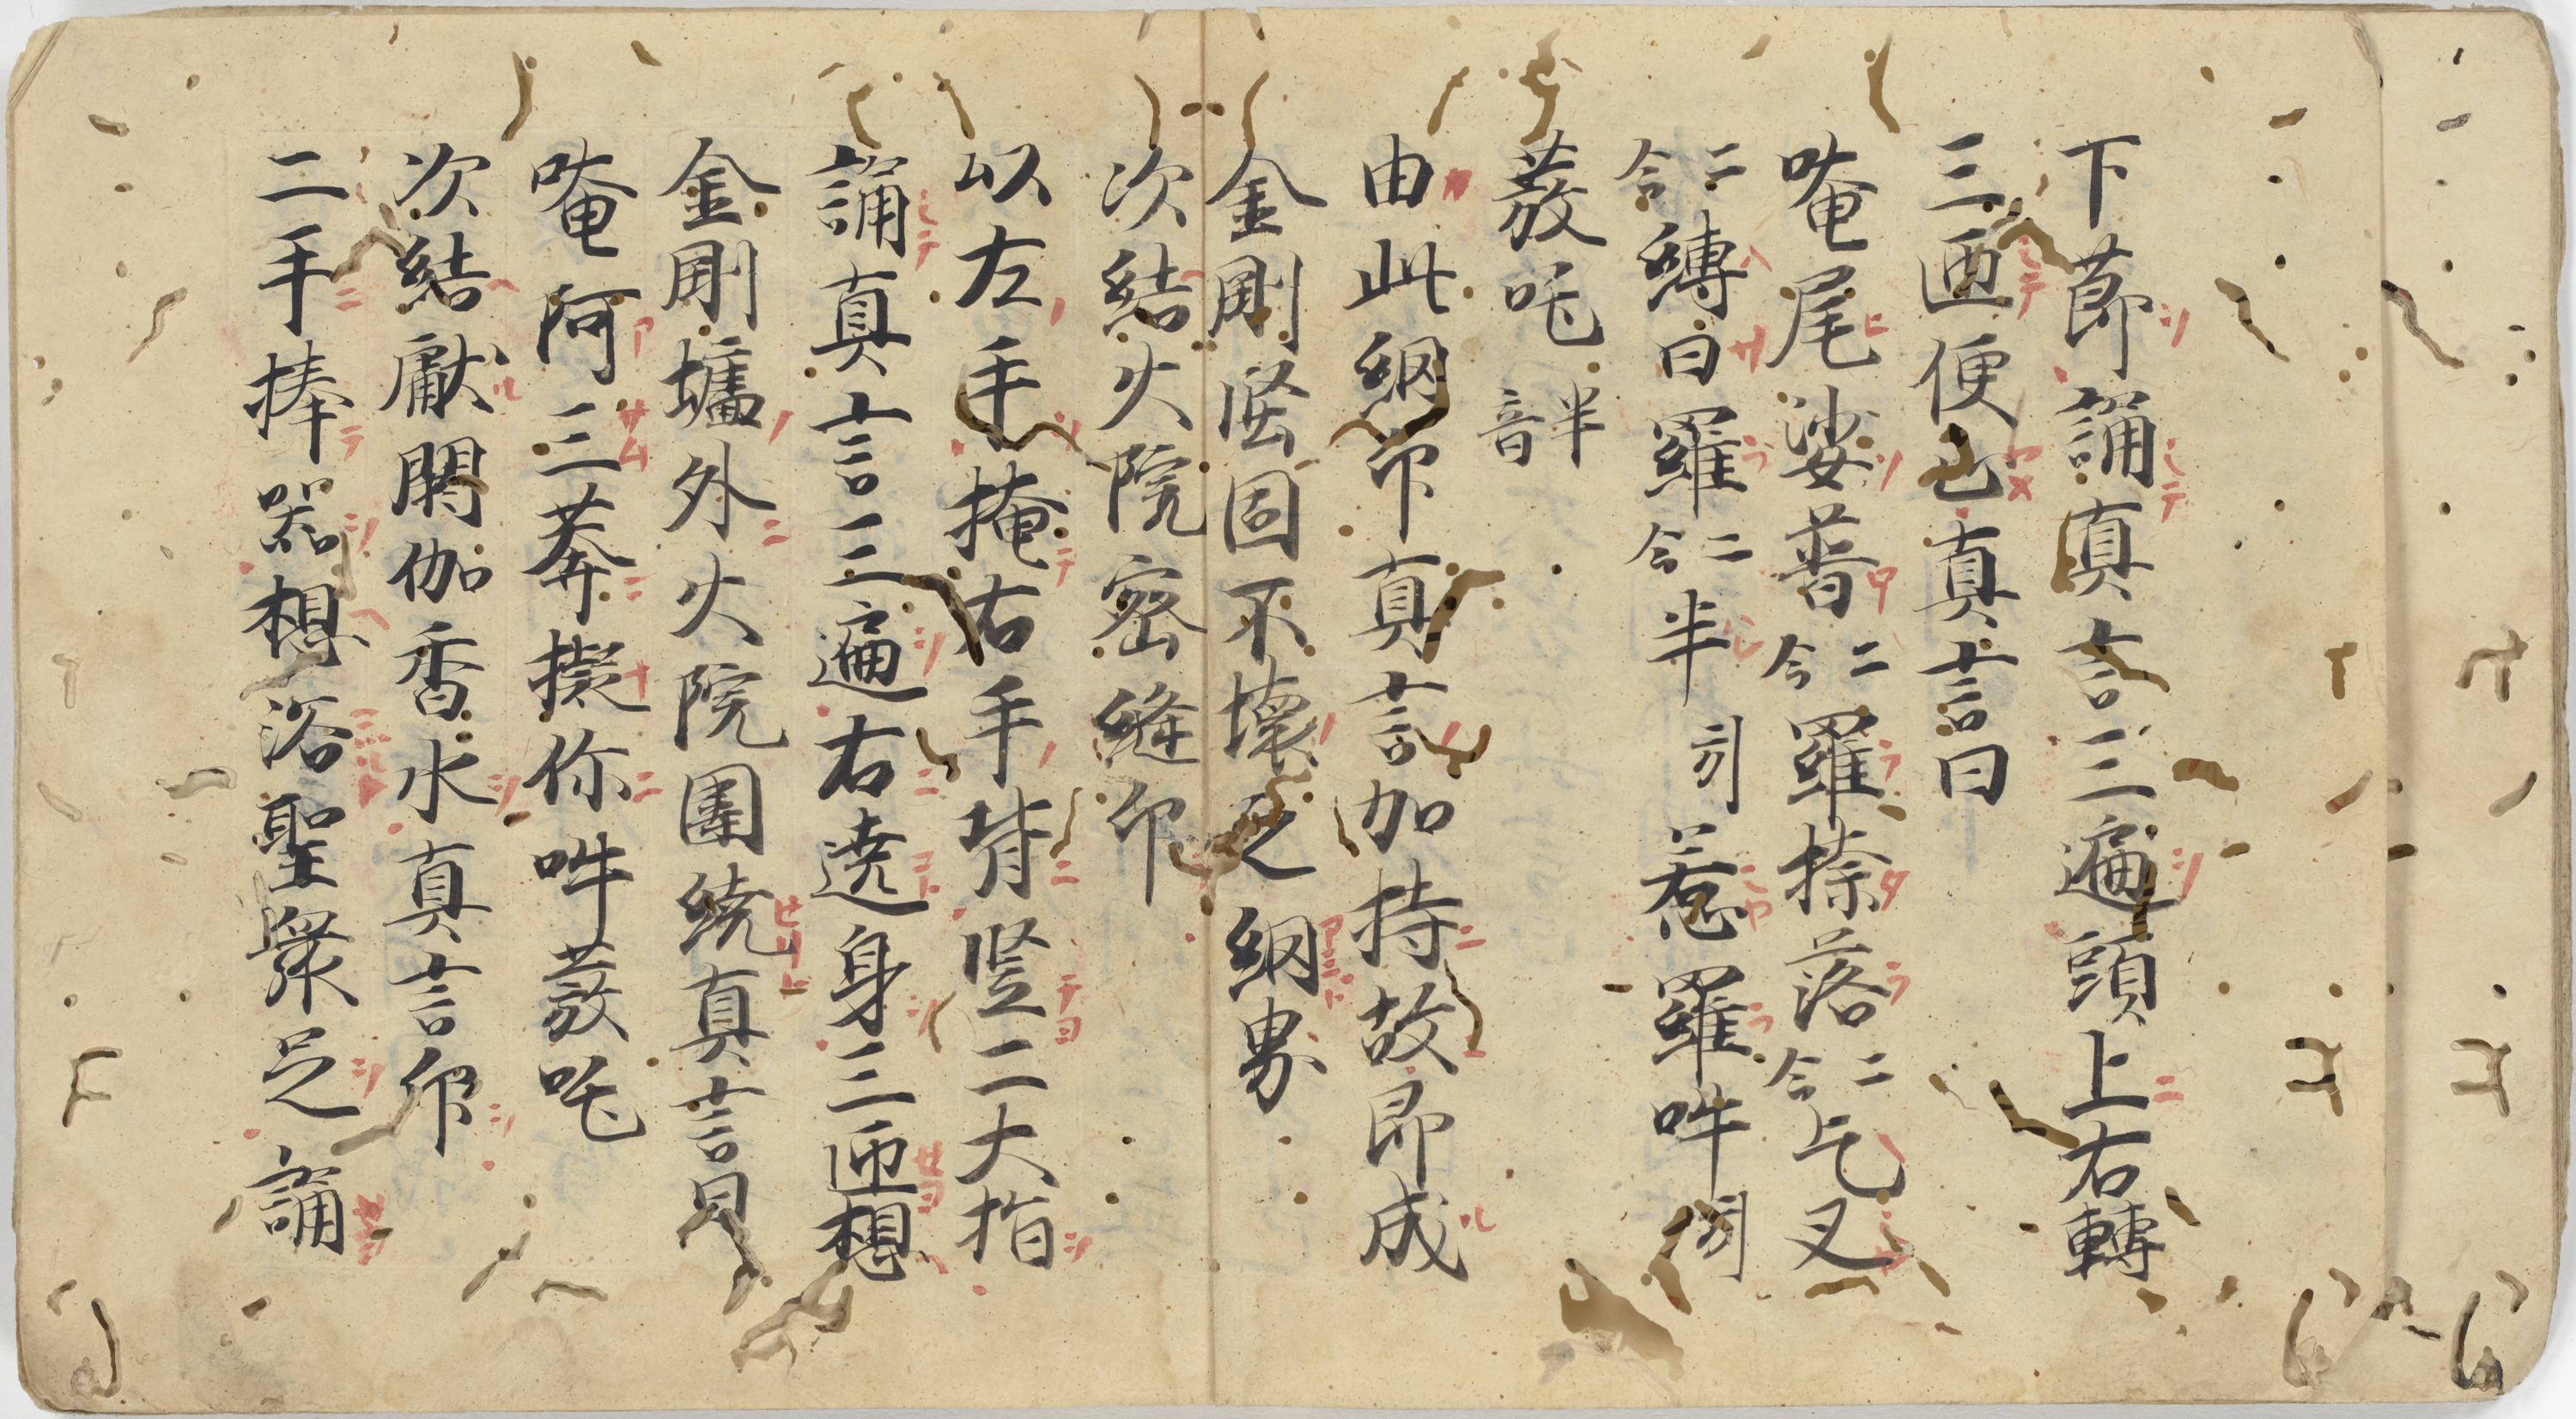 下莭誦真言三遍頭上右轉
三迊便已真言曰
唵尾娑普二合羅捺落二合乞叉
二合縛曰羅二合半引惹羅吽引
發吒半音
由此網印真言加持故即成
金剛堅固不壞之網界
次結火院密縫印
以左手掩右手背竪二大指
誦真言三遍右遶身三匝想
金剛墻外火院圍繞真言曰
唵阿三莽擬你吽發吒
次結獻閼伽香水真言印
二手捧器想浴聖衆足誦